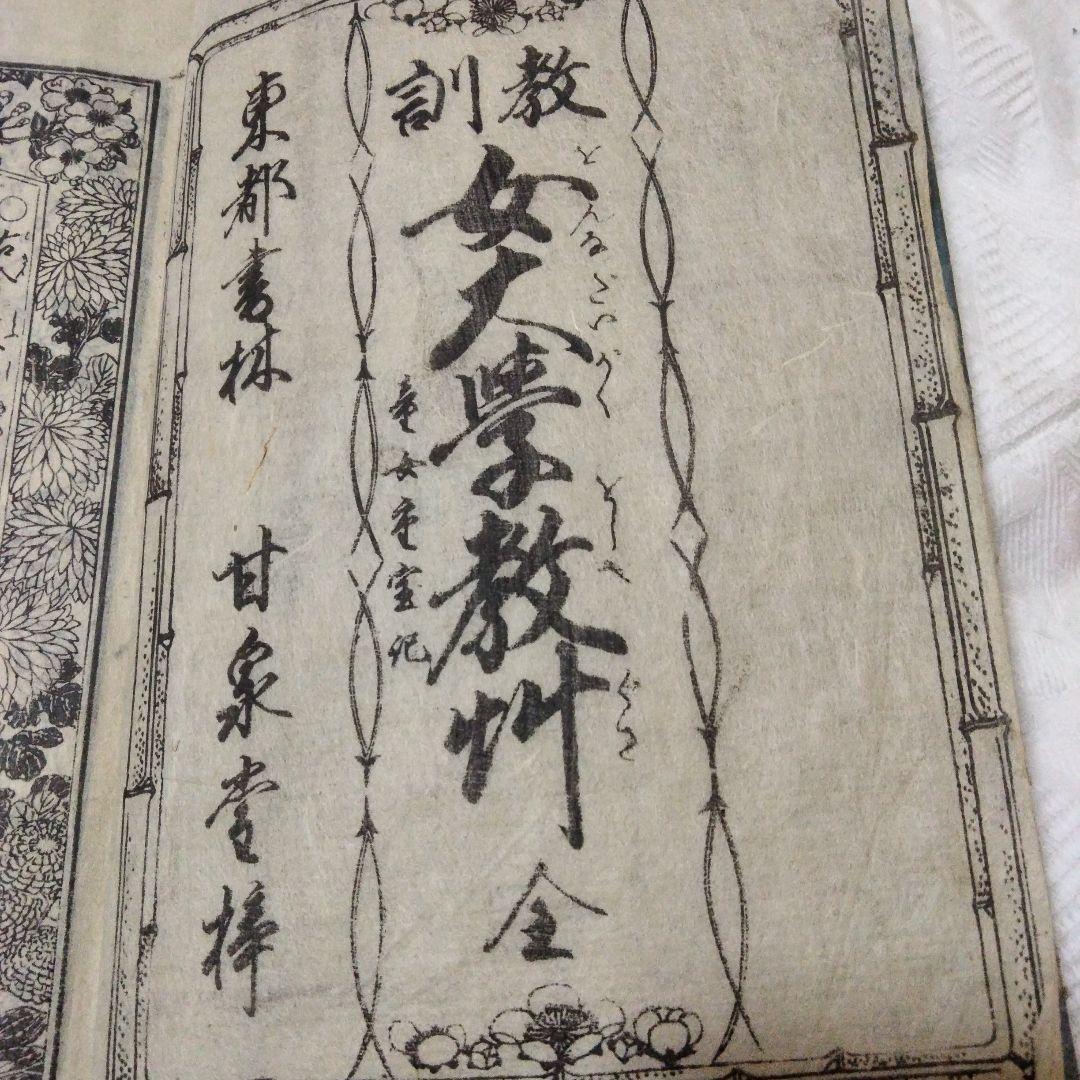 教訓
女大學教艸 全
をんなだいがく をしへ ぐさ
童女重宝記
東都書林 甘泉堂梓